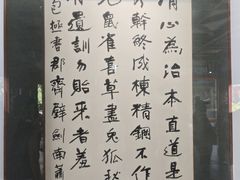 清心為治本直道是
榦終成棟精鋼不作
充鼠雀喜草盡兔狐愁
有遺訓勿貽来者羞
包拯書郡齋壁劍南